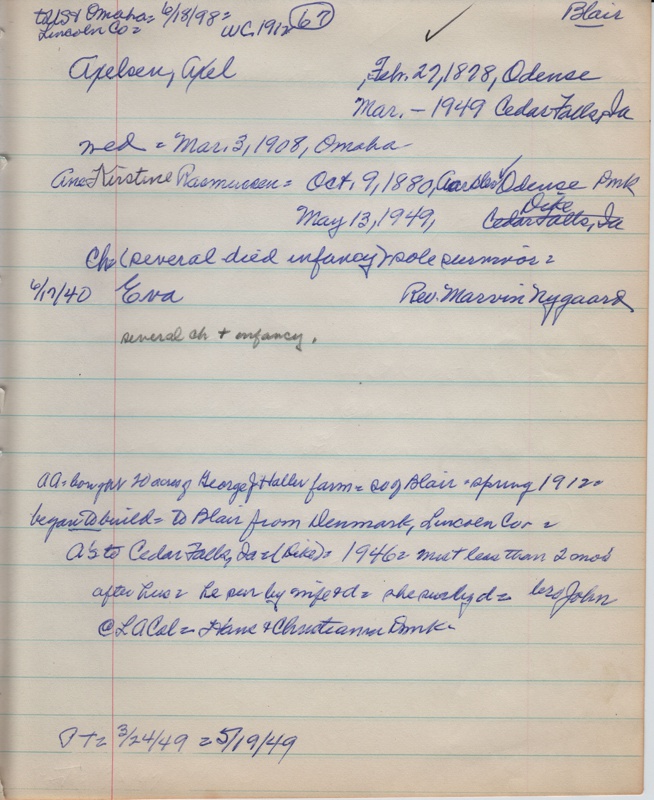 to US & Omaha = 6/18/98 =
Blair
Lincoln Co =
WC 1912
67
✓
Axelsen, Axel
Feb. 27, 1878, Odense
Mar. – 1949 Cedar Falls, Ia
med = Mar. 3, 1908, Omaha
Ane Kirstine Rasmussen = Oct. 9, 1880, Odense Dmk
Dike
May 13, 1949, Cedar Falls, Ia
Ch (several died infancy) sole survivor =
6/17/40 Eva Rev. Marvin Nygaard
several ch + infancy.
AA = bought 20 acres of George J Haller farm = so of Blair = spring 1912 =
began to build = to Blair from Denmark, Lincoln Co =
A's to Cedar Falls, Ia = (Dike) = 1946 = less than 2 mos
after hus = he sur by wife & d = she sur by d = bro John
@ L A Cal = Hans & Christianna Dmk =
PT = 3/24/49 = 5/19/49